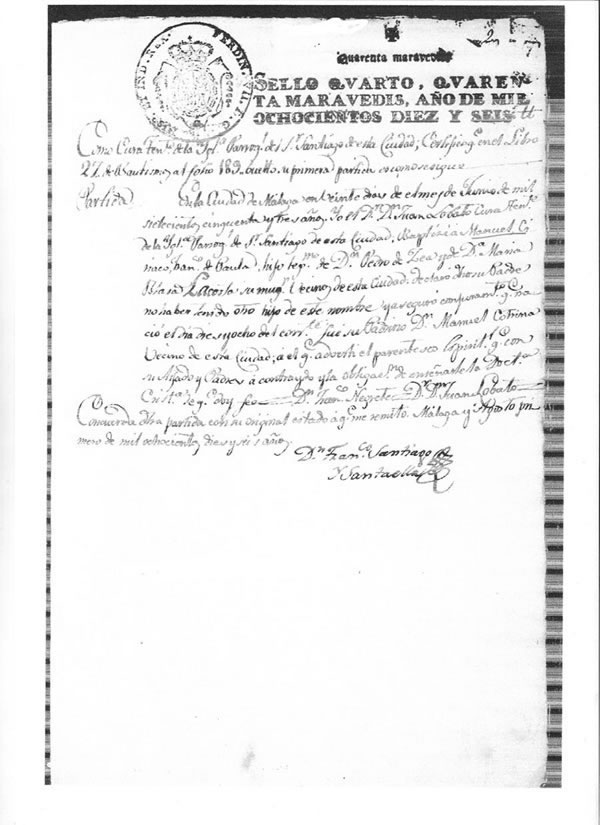 2
Quarenta maravedis
SELLO QVARTO, QVAREN-
TA MARAVEDIS, AÑO DE MIL
OCHOCIENTOS DIEZ Y SEIS
HISP. ET IND. REX. FERDIN. VII. D. G.
Como Cura Tente. de la Yglª. Parroql. de Sr. Santiago de esta Ciudad; Certifico qe. en el Libro
de Bautismos, al folio su primera partida es como se sigue
Partida
En la Ciudad de Malaga en veinte dias de el mes de Junio de mil
setecientos, cinquenta y tres años, Yo el Dr. Dn. Juan Lobato Cura Tente.
de la Yglª. Parroql. de Sr. Santiago de esta Ciudad, Baptizé a Manuel Ci-
riaco, Franco. de Paula, hijo legmo. de Dn. Pedro de y de Dª. Maria
Lacosta su mugr. Vecinos de esta Ciudad; declaró dho su Padre
no haber tenido otro hijo de este nombre y aseguró con juramto. qe. na-
ció el dia dies y ocho del corrte. fue su Padrino Dn. Manuel Cotrina
Vecino de esta Ciudad; a el qe. advertí el parentesco Espiritl. qe. con
su Ahijado y Padres á contraydo y la obligaon. de enseñarle la Doctª.
Cristª. de qe. doy fee Dn. Franco. Negrete Dr. Dn. Juan Lobato
Concuerda dha partida con su original citado á qe. me remito. Málaga y Agosto pri-
mero de mil ochocientos, dies y seis años
Dn. Franco. Santiago
y Santaella